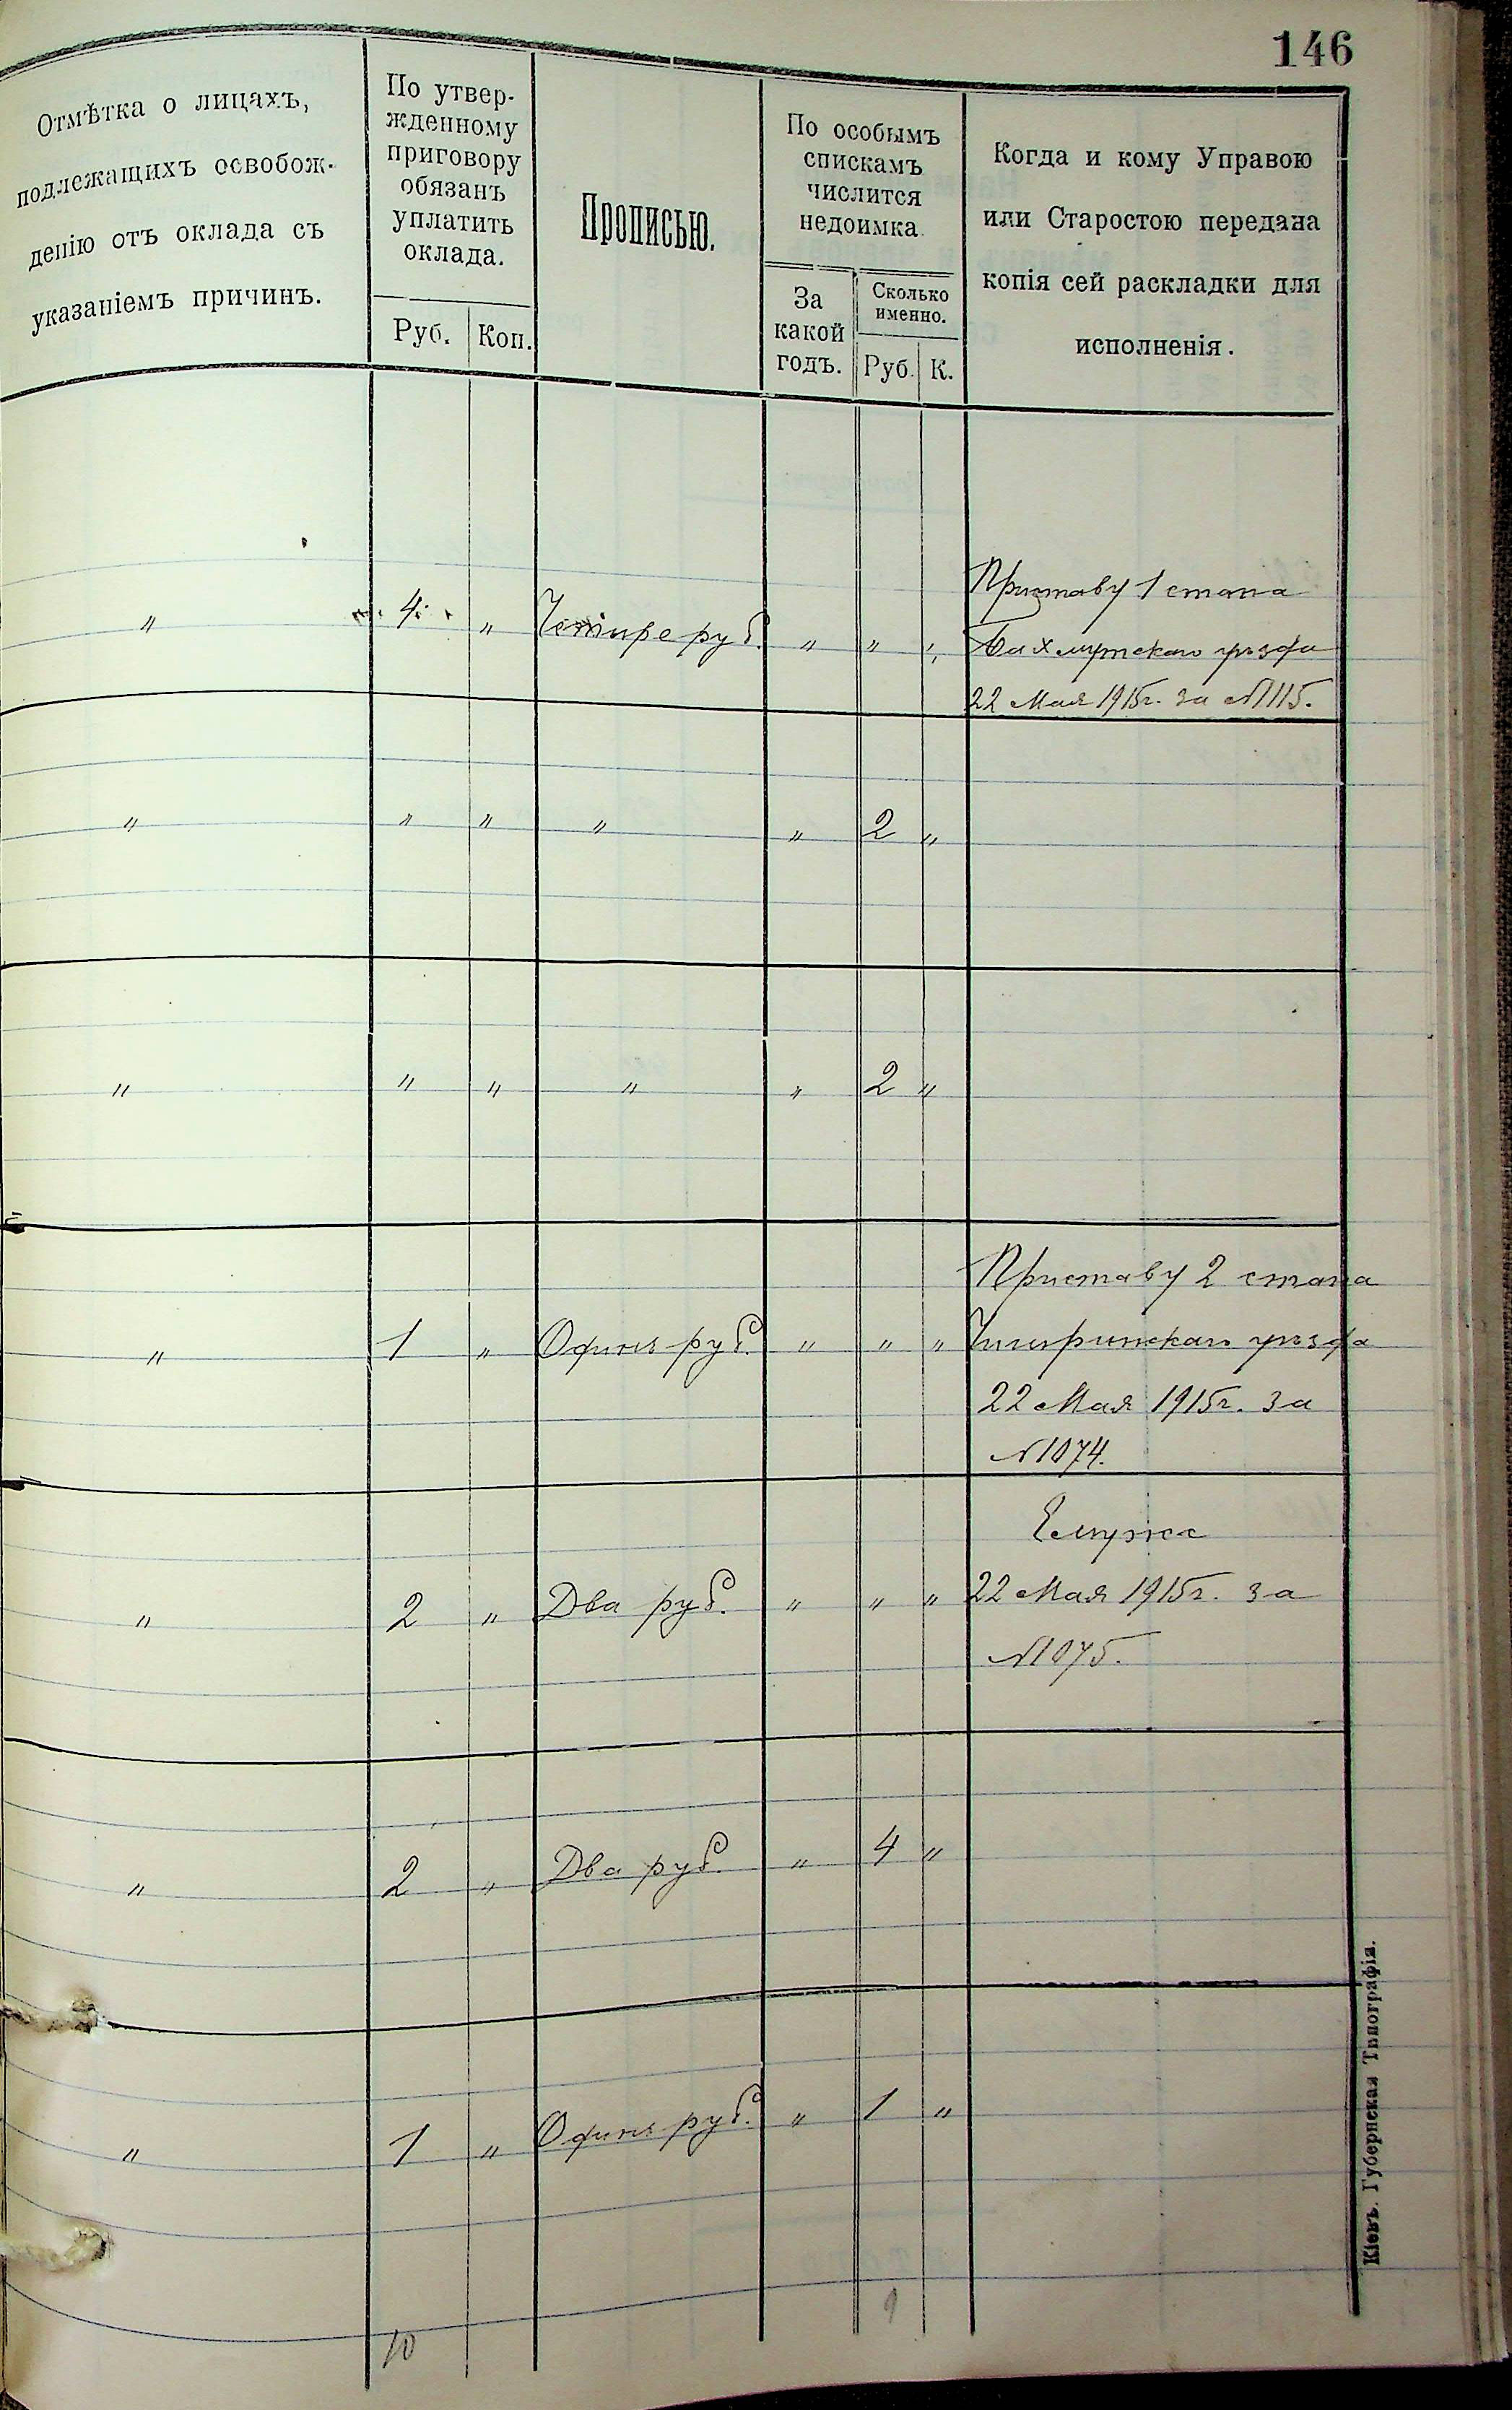 146
Отмѣтка о лицахъ,
подлежащихъ освобож-
денію отъ оклада съ
указаніемъ причинъ.
По утвер-
жденному
приговору
обязанъ
уплатить
оклада.
Руб.
Коп.
Прописью.
По особымъ
спискамъ
числится
недоимка
За
какой
годъ.
Сколько
именно.
Руб.
К.
Когда и кому Управою
или Старостою передана
копія сей раскладки для
исполненія.
Приставу 1 стана
" 4 " Четыре руб. " " " Бахмутскаго уѣзда
22 Мая 1915г. за №1115.
" " " " " 2 "
" " " " " 2 "
Приставу 2 стана
" 1 " Одинъ руб. " " " Чигиринскаго уѣзда
22 Мая 1915г. за
№1074.
Ему же
" 2 " Два руб. " " " 22 Мая 1915г. за
№1075.
" 2 " Два руб. " 4 "
" 1 " Одинъ руб. " 1 "
10 9
Кіевъ. Губернская Типографія.